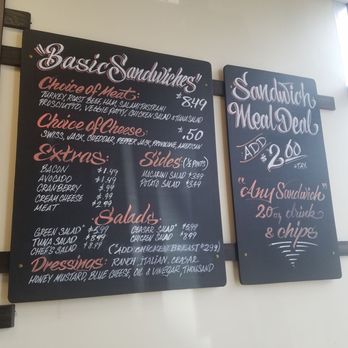 "Basic Sandwiches"
Choice of Meat: $8.49
TURKEY, ROAST BEEF, HAM, SALAMI, PASTRAMI
PROSCIUTTO, VEGGIE PATTY, CHICKEN SALAD & TUNA SALAD
Choice of Cheese: $.50
SWISS, JACK, CHEDDAR, PEPPER JACK, PROVOLONE, AMERICAN
Extras:
BACON $1.49
AVOCADO $1.49
CRANBERRY $.99
CREAM CHEESE $.99
MEAT $2.99
Sides: (½ Pints)
MACARONI SALAD
POTATO SALAD
Salads
GREEN SALAD
TUNA SALAD
CHEF'S SALAD
CAESAR SALAD
CHICKEN SALAD
(ADD CHICKEN BREAST $2.99)
Dressings: RANCH, ITALIAN, CAESAR,
HONEY MUSTARD, BLUE CHEESE, OIL & VINEGAR, THOUSAND
Sandwich
Meal Deal
ADD
$2.60
+TAX
"Any Sandwich"
20oz drink
& chips